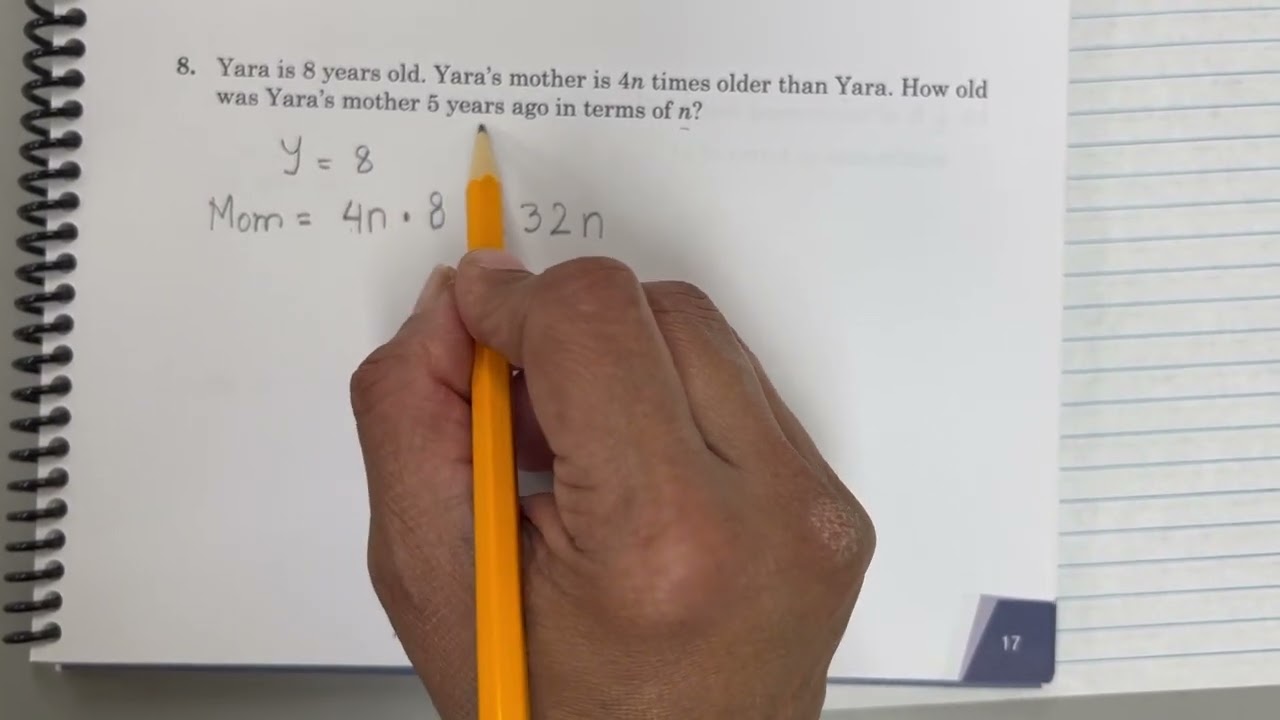 8. Yara is 8 years old. Yara's mother is 4n times older than Yara. How old
was Yara's mother 5 years ago in terms of n?
y = 8
Mom = 4n · 8 32n
17